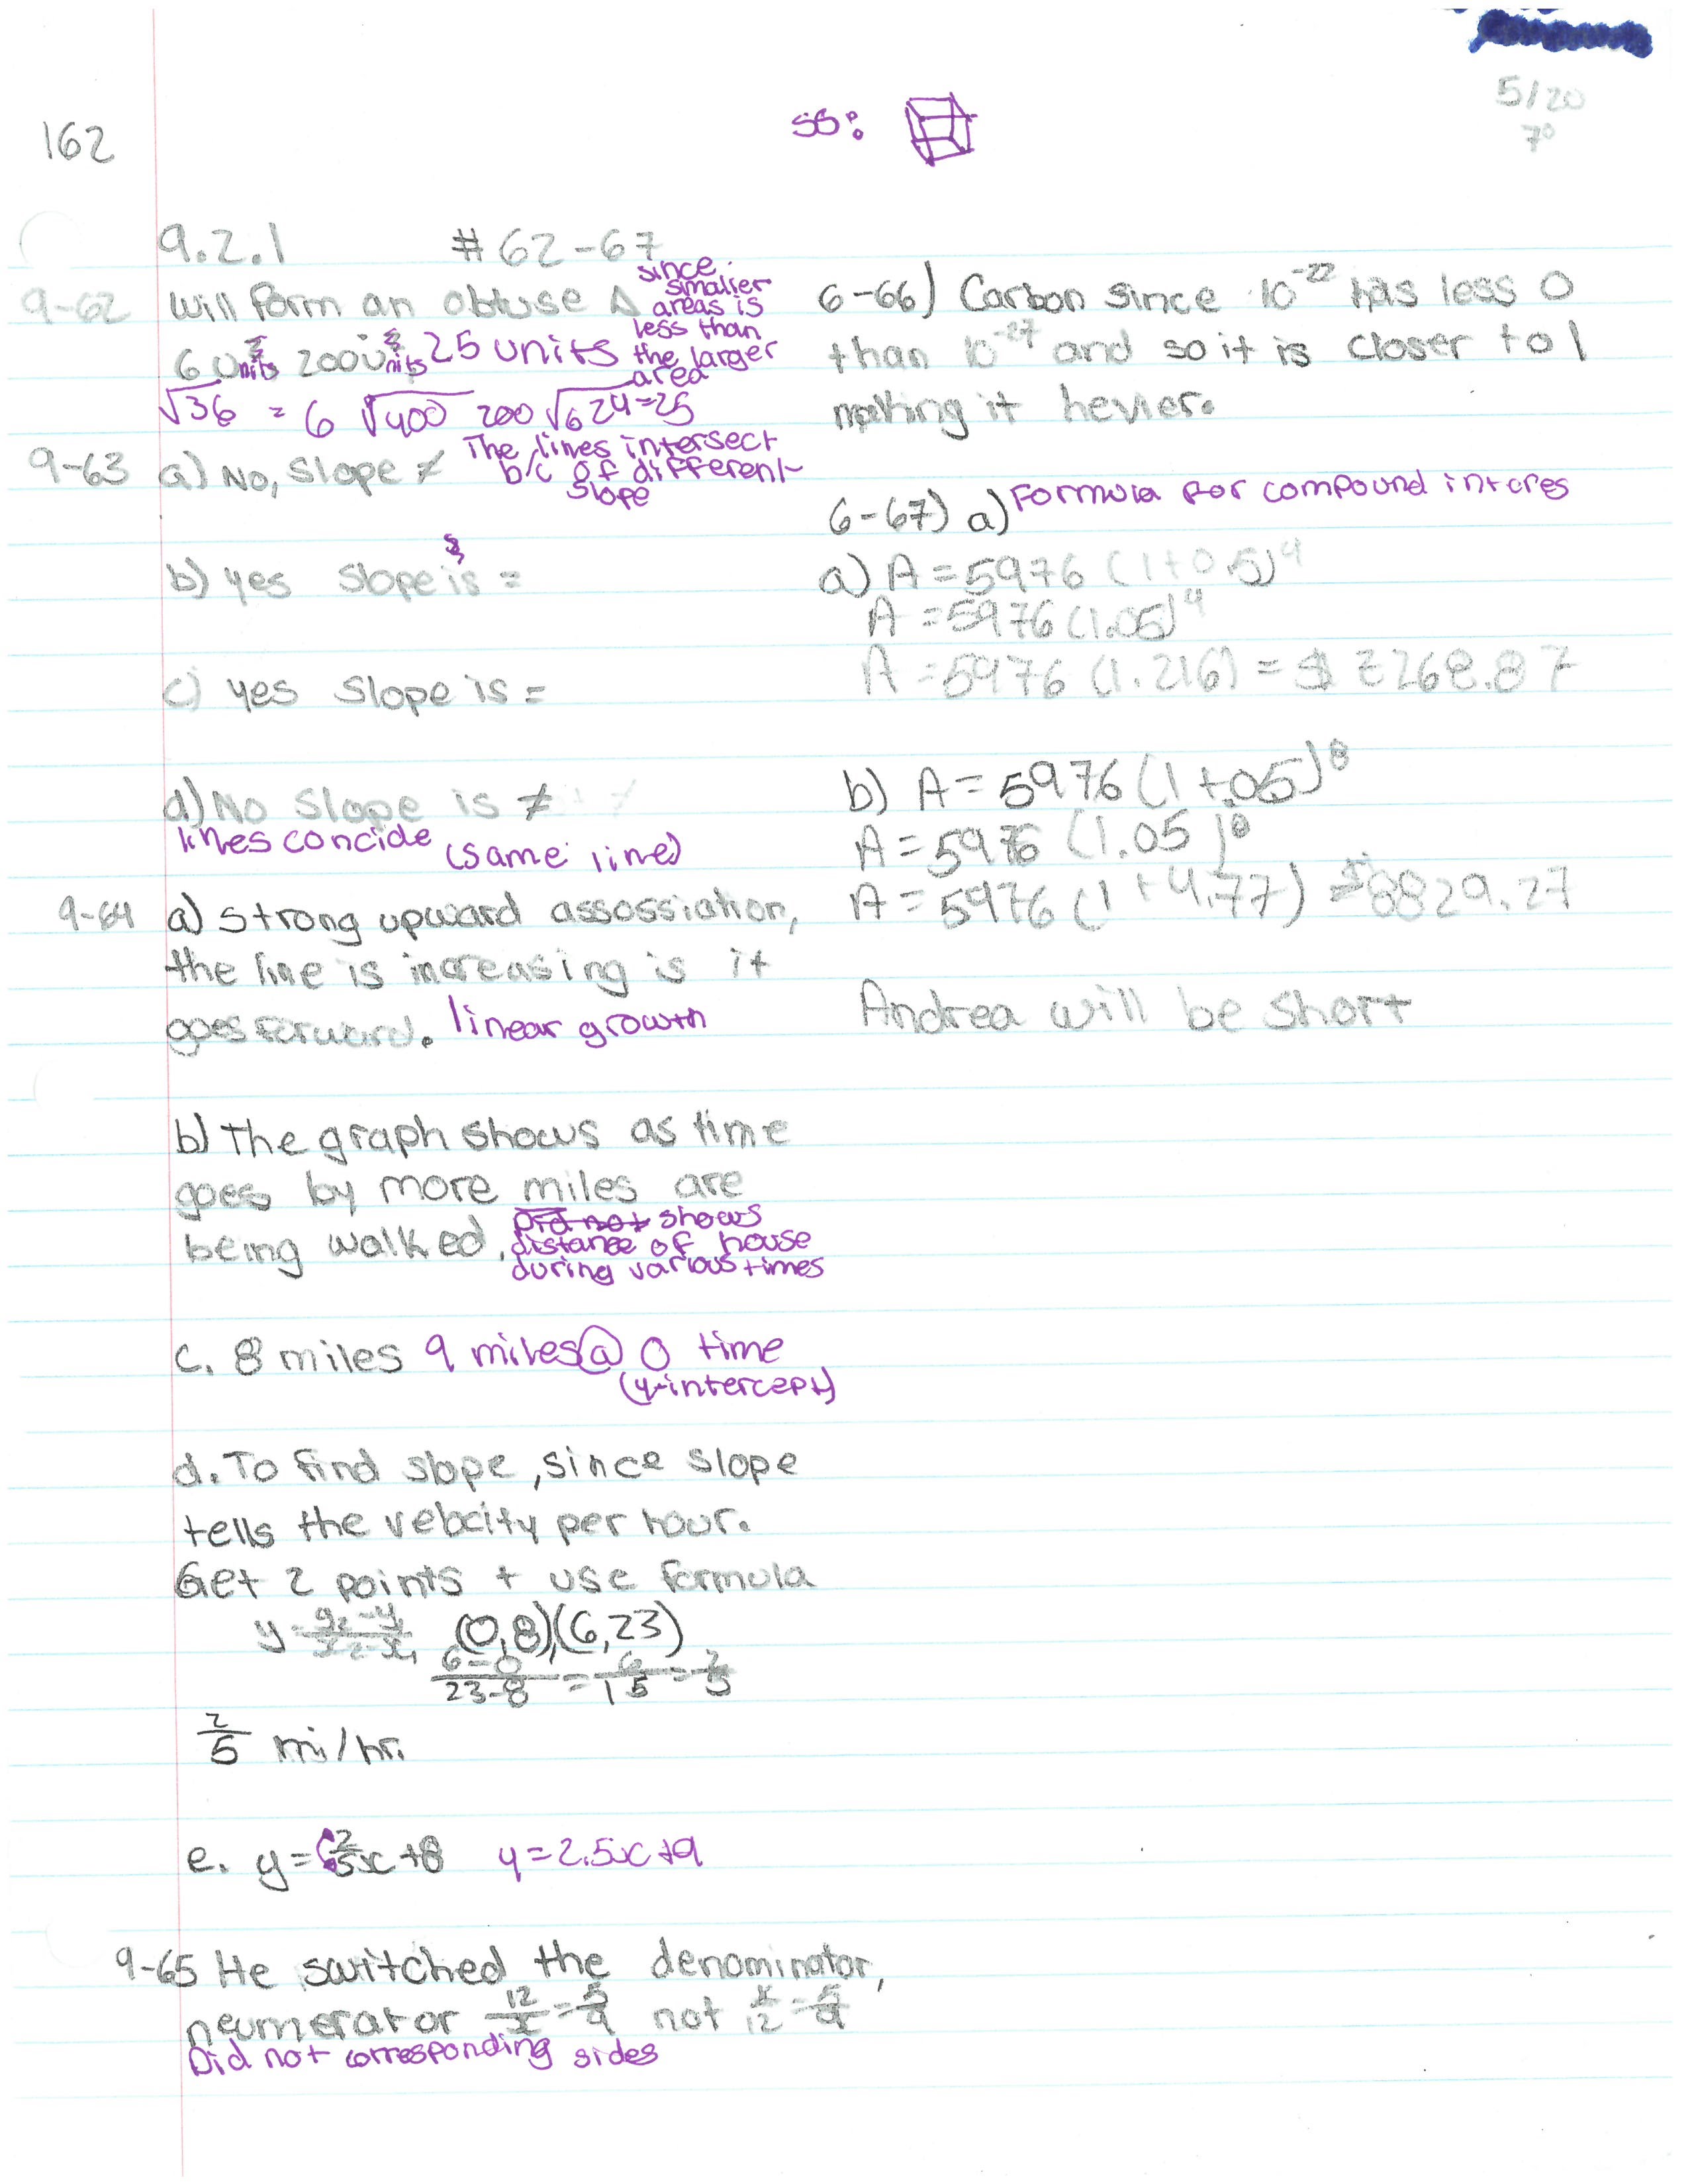 5/20
7°
162
SS:
9.2.1 #62-67
9-62 Will Form an obtuse Δ since smaller areas is less than the larger area
6 Units 200 Units 25 units
√36 = 6 √400 200 √624=25
9-63 a) No, Slope ≠ The lines intersect b/c of different slope
b) yes Slope is =
c) yes Slope is =
d) No Slope is ≠
lines concide (same line)
9-64 a) Strong upward assossiation,
the line is increasing is it
goes forward. linear growth
b) The graph shows as time
goes by more miles are
being walked, Did not shows
distance of house
during various times
c. 8 miles 9 miles @ 0 time
(y-intercept)
d. To find slope, since slope
tells the velocity per hour.
Get 2 points + use formula
y = y₂-y₁/x₂-x₁ (0,8)(6,23)
6-0/23-8 = 6/15 = 2/5
2/5 mi/hr.
e. y = 2/5x+8 y=2.5x+9
9-65 He switched the denominator,
neumerator 12/x = 5/9 not x/12 = 5/9
Did not corresponding sides
6-66) Carbon Since 10⁻²² has less 0
than 10⁻²⁷ and so it is closer to 1
making it hevier.
6-67) a) Formula for compound interes
a) A = 5976 (1+0.5)⁴
A = 5976 (1.05)⁴
A = 5976 (1.216) = $ 7268.87
b) A = 5976 (1+.05)⁸
A = 5976 (1.05)⁸
A = 5976 (1+4.77) = $8829.27
Andrea will be short